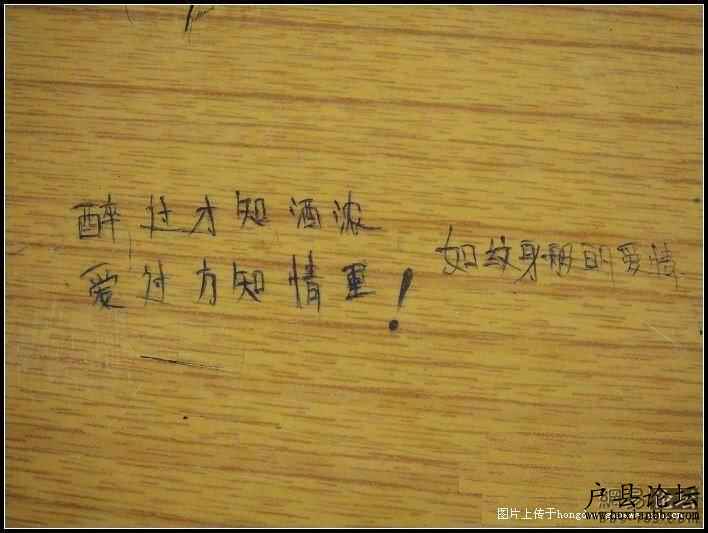 醉过才知酒浓
爱过方知情重！
如纹身般的爱情
户县论坛
图片上传于